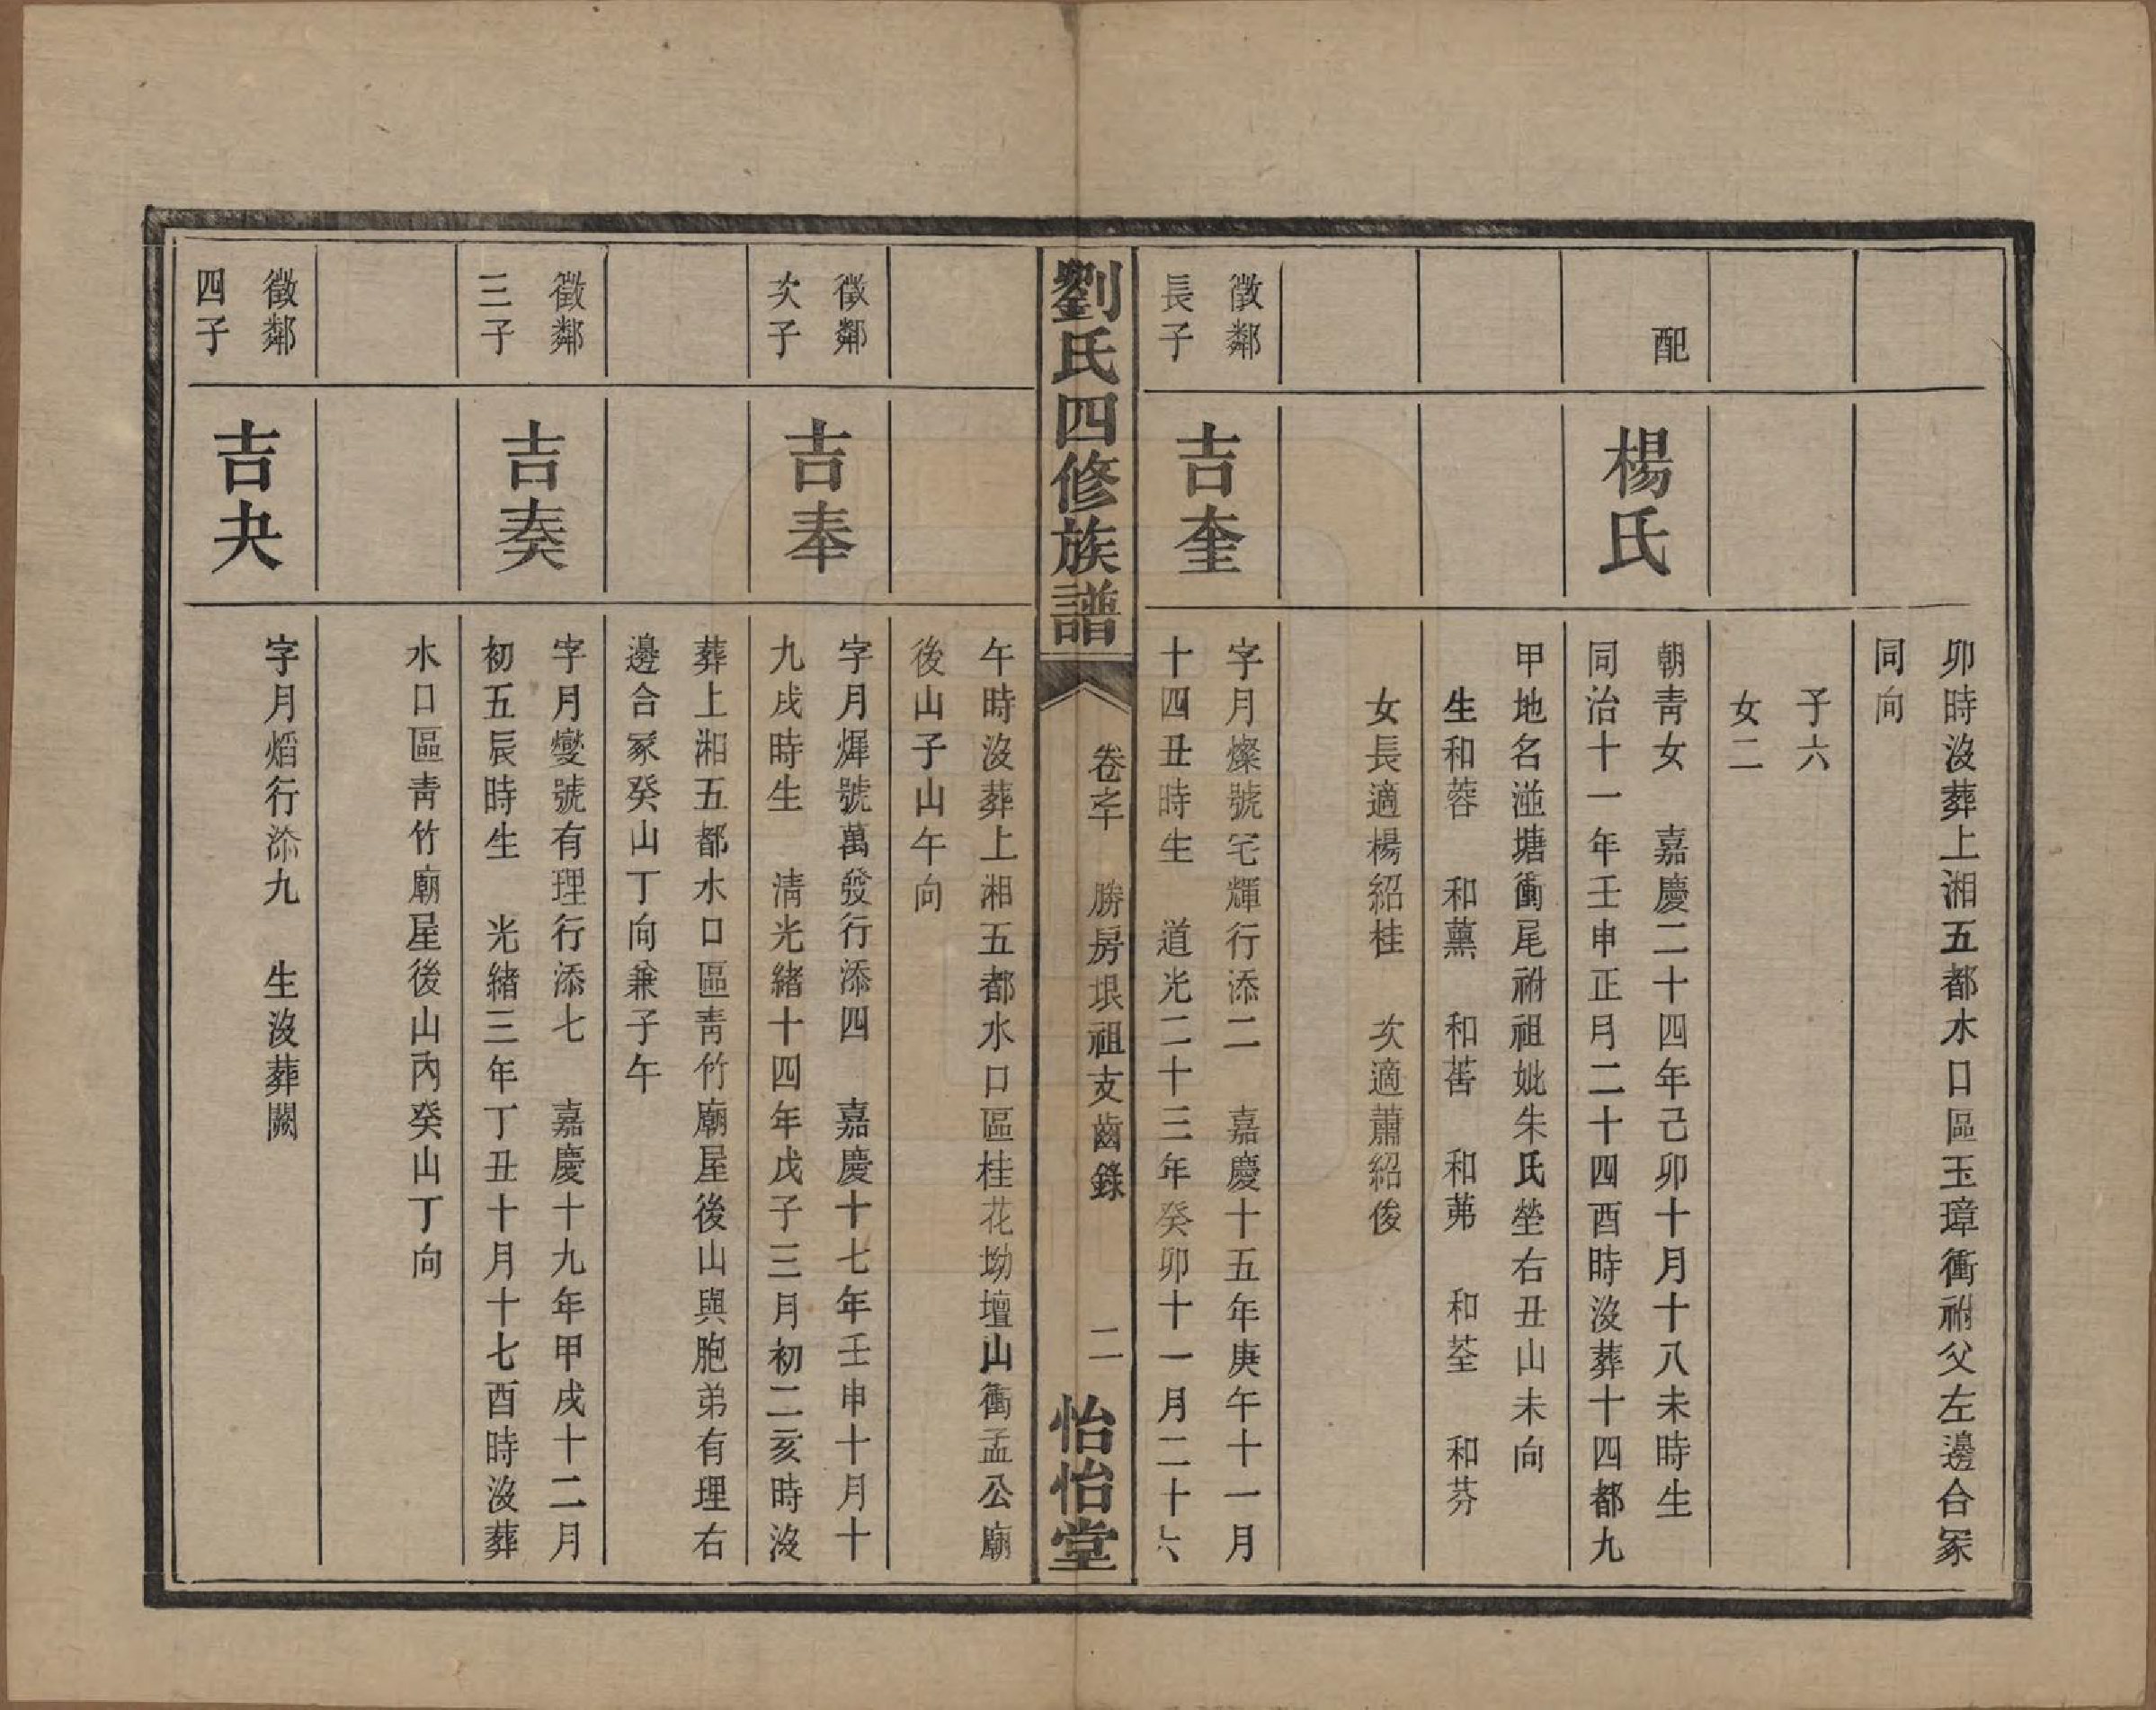 卯時沒葬上湘五都水口區玉璋衝祔父左邊合冢
同向
子六
女二
配
楊氏
朝靑女 嘉慶二十四年己卯十月十八未時生
同治十一年壬申正月二十四酉時沒葬十四都九
甲地名湴塘衝尾祔祖妣朱氏塋右丑山未向
生和蓉 和薰 和萅 和茀 和荃 和芬
女長適楊紹桂 次適蕭紹俊
徵鄰
長子
吉奎
字月燦號宅輝行添二 嘉慶十五年庚午十一月
十四丑時生 道光二十三年癸卯十一月二十六
劉氏四修族譜
卷之十 勝房垠祖支齒錄 二
怡怡堂
午時沒葬上湘五都水口區桂花坳壇山衝孟公廟
後山子山午向
徵鄰
次子
吉奉
字月燀號萬發行添四 嘉慶十七年壬申十月十
九戌時生 淸光緖十四年戊子三月初二亥時沒
葬上湘五都水口區靑竹廟屋後山與胞弟有理右
邊合冢癸山丁向兼子午
徵鄰
三子
吉奏
字月燮號有理行添七 嘉慶十九年甲戌十二月
初五辰時生 光緖三年丁丑十月十七酉時沒葬
水口區靑竹廟屋後山內癸山丁向
徵鄰
四子
吉夬
字月熖行添九 生沒葬闕